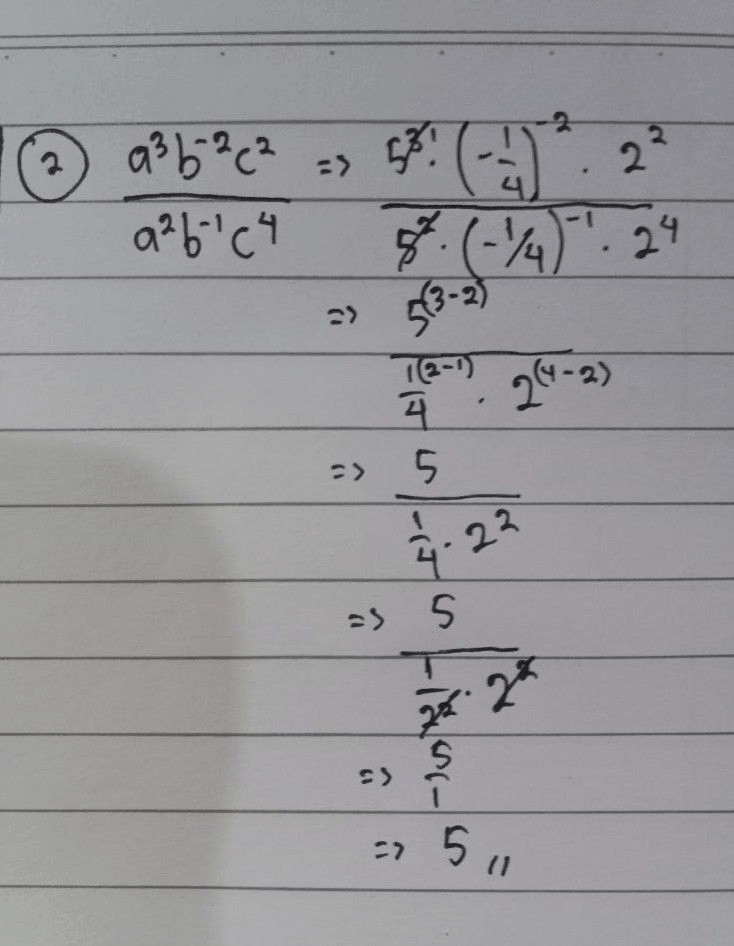 ② a³b⁻²c² / a²b⁻¹c⁴ => 5³ ¹ · (-1/4)⁻² · 2² / 5² · (-1/4)⁻¹ · 2⁴
=> 5⁽³⁻²⁾ / 1/4⁽²⁻¹⁾ · 2⁽⁴⁻²⁾
=> 5 / 1/4 · 2²
=> 5 / 1/2² · 2²
=> 5/1
=> 5 //